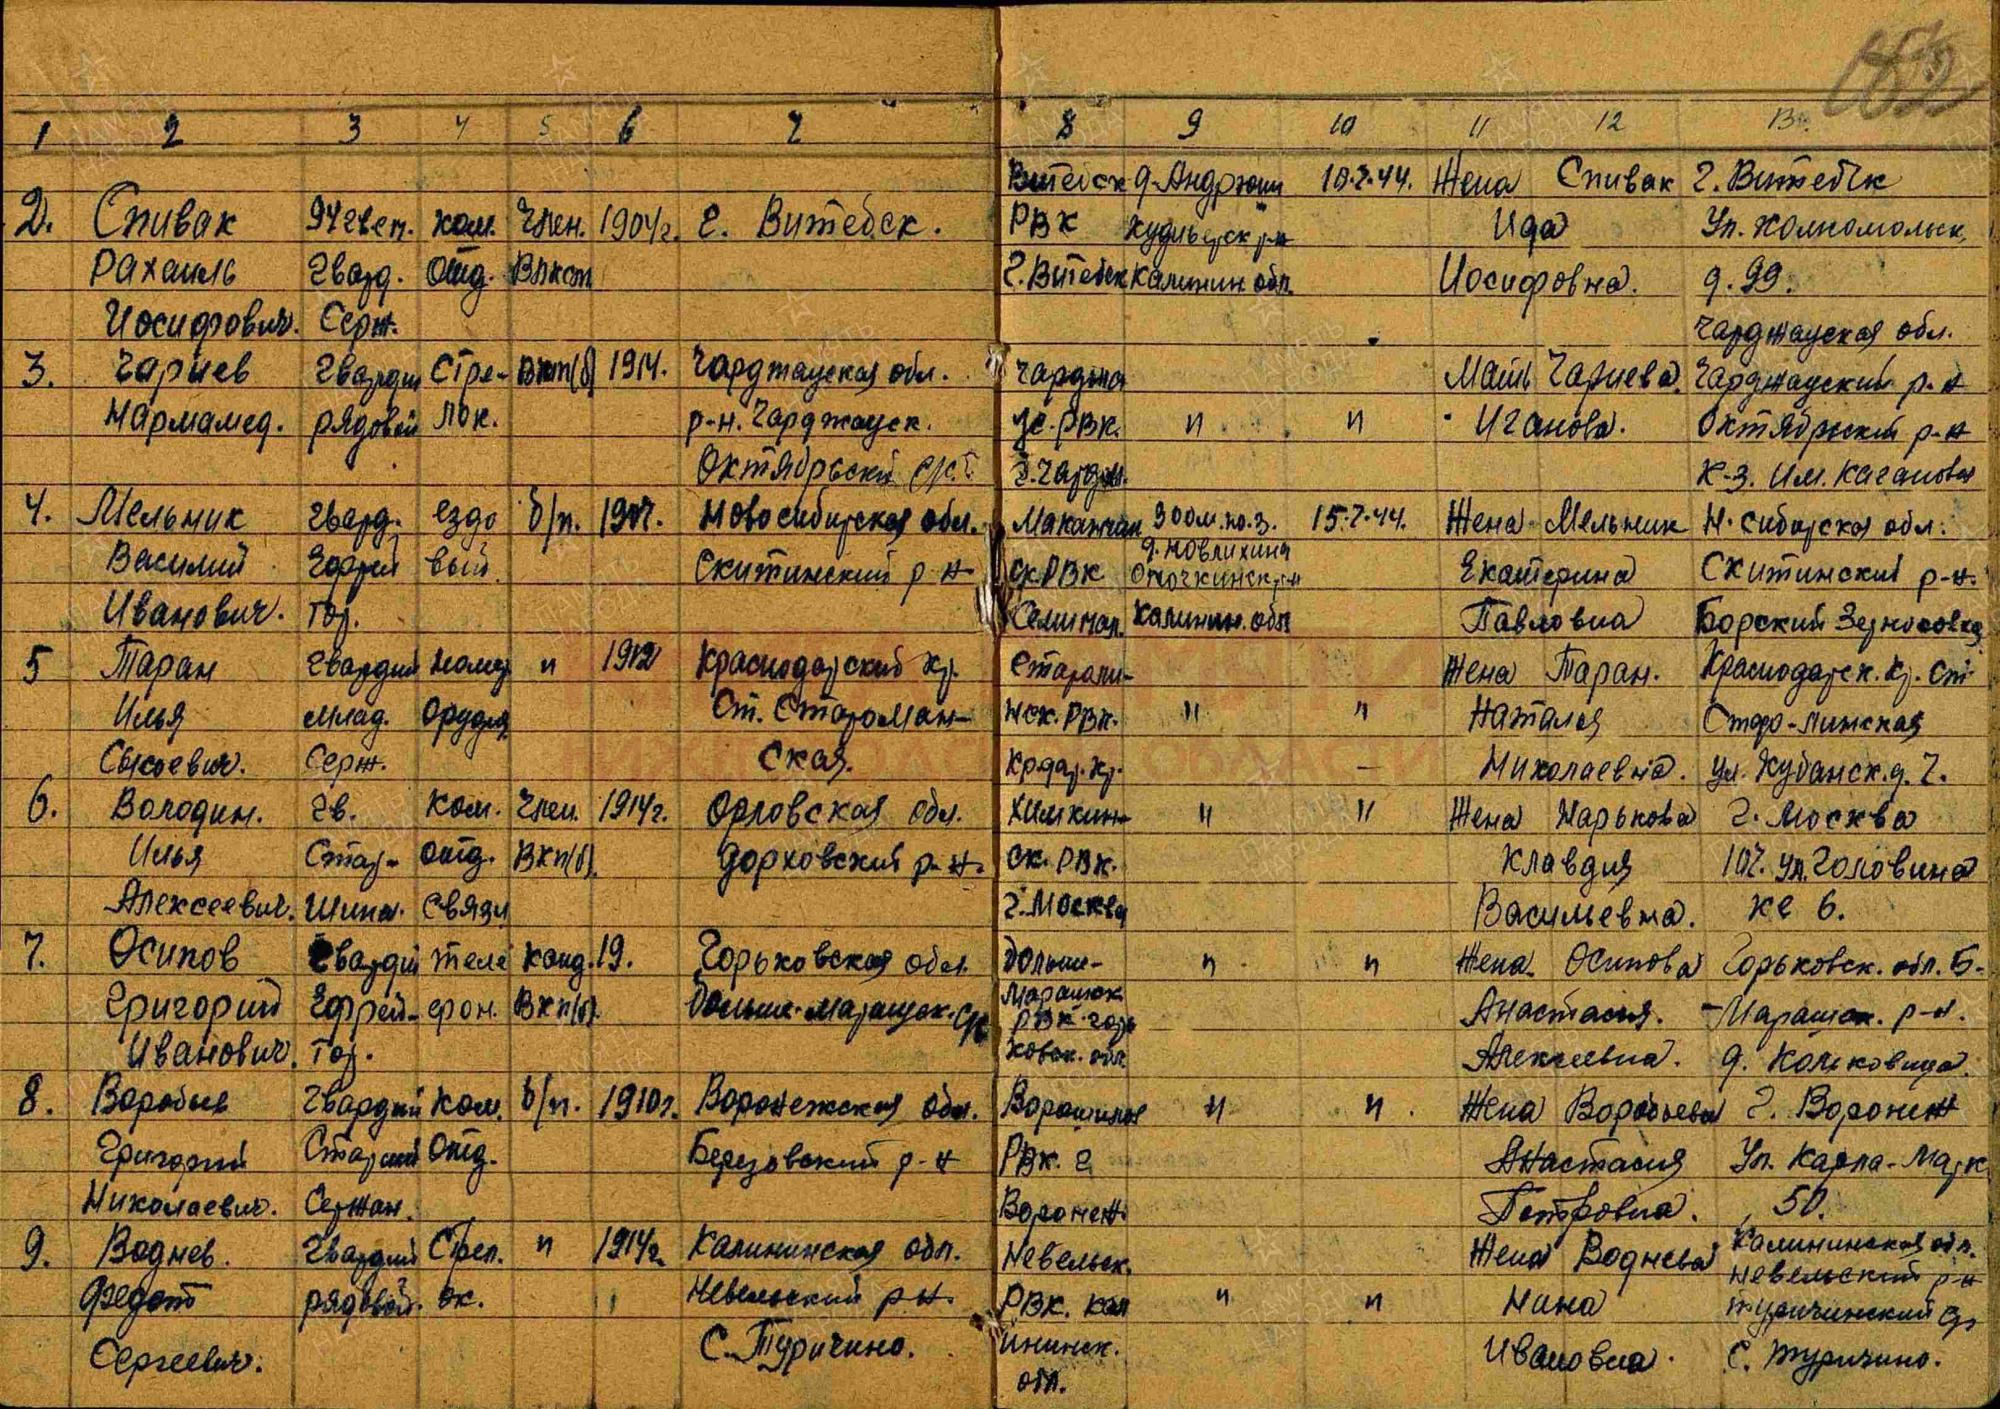 1 2 3 4 5 6 7 8 9 10 11 12 13.
Витебск д. Андрюши 10.7.44. Жена Спивак г. Витебск
2. Спивак ком. Член. 1904г. г. Витебск. РВК Ида Ул. Комсомольск.
Рахаиль Гвард. отд. г. Витебск Калинин. обл. Иосифовна. д. 99.
Иосифович. Серж. Чарджауская обл.
3. Чариев Гвардии Стре- ВКП(б) 1914. Чарджауская обл. Мать Чариева. Чарджауский р-н
Нармамед. рядовой лок. р-н. Чарджауск. ус. РВК. " " Октябрьский р-н
Октябрьский г. Чардж. к-з. им. Каганова
4. Мельник Гвард. ездо б/п. Новосибирская обл. 300 м. ю.з. 15.7.44. Жена Мельник Н. Сибирская обл.
д. Новлихина
Василий Ефрей вый Скитинский р-н РВК Опочкинск р-н Екатерина Скитинский р-н.
Иванович. тор. Калинин. обл Павловна Борский
5 Таран Гвардии номер " 1912 Краснодарский кр. Жена Таран. Краснодарск. кр. ст.
Илья млад. орудия Ст. Староман- нск. РВК. " " Наталья Старо-минская
Сысоевич. Серж. ская. Крдар. кр. — Николаевна. ул. Кубанск. д. 7.
6. Володин. Гв. ком. Член. 1914г. Орловская обл. Химкин- " " Жена Г. Москва
Илья Стар- отд. ВКП(б). р-н. ск. РВК. Клавдия 107. ул. Головина
Алексеевич. шина. связи г. Москва Васильевна. ке 6.
7. Осипов Гвардии теле Канд. 19. Горьковская обл. Больше- " " Жена Осипова Горьковск. обл. Б-
Марашк.
Григорий Ефрей- фон. ВКП(б). РВК. Горь Анастасия. р-н.
Иванович. тор. ковск. обл. Алексеевна.
8. Воробьев Гвардии ком. б/п. 1910г. Воронежская обл. Ворошилов " " Жена Воробьева г. Воронеж
Григорий Старший отд. Березовский р-н РВК. г Анастасия Ул. Карла-Марк
Николаевич. Сержан. Воронеж. Петровна. 50.
9. Воднев. Гвардии Стрел. " 1914г. Калининская обл. Невельск. Жена Воднева Калининская обл.
Невельский р-н
Федот рядовой. ок. Невельский р-н. РВК. Кал " " Нина Туричинский
Сергеевич. С. Туричино. ининск. Ивановна. с. Туричино.
обл.